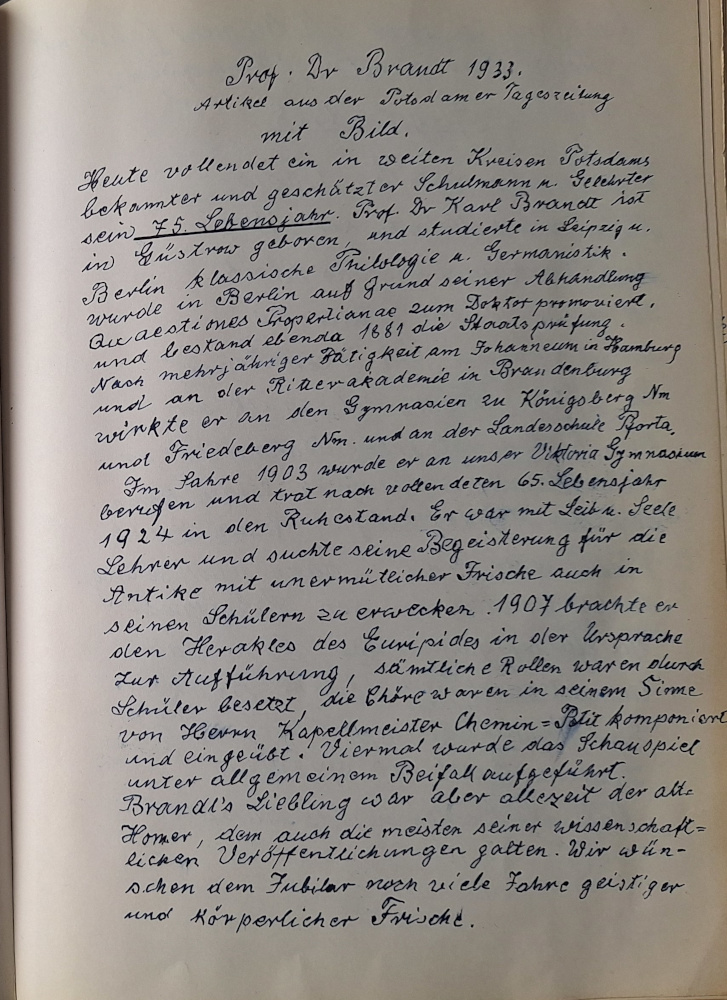 Prof. Dr Brandt 1933.
Artikel aus der Potsdamer Tageszeitung
mit Bild.
Heute vollendet ein in weiten Kreisen Potsdams
bekannter und geschätzter Schulmann u. Gelehrter
sein 75. Lebensjahr. Prof. Dr Karl Brandt ist
in Güstrow geboren, und studierte in Leipzig u.
Berlin klassische Philologie u. Germanistik.
wurde in Berlin auf Grund seiner Abhandlung
Quaestiones Propertianae zum Doktor promoviert.
und bestand ebenda 1881 die Staatsprüfung.
Nach mehrjähriger Tätigkeit am Johanneum in Hamburg
und an der Ritterakademie in Brandenburg
wirkte er an den Gymnasien zu Königsberg Nm
und Friedeberg Nm. und an der Landesschule Pforta.
Im Jahre 1903 wurde er an unser Viktoria Gymnasium
berufen und trat nach vollendeten 65. Lebensjahr
1924 in den Ruhestand. Er war mit Leib u. Seele
Lehrer und suchte seine Begeisterung für die
Antike mit unermütlicher Frische auch in
seinen Schülern zu erwecken. 1907 brachte er
den Herakles des Euripides in der Ursprache
zur Aufführung, sämtliche Rollen waren durch
Schüler besetzt, die Chöre waren in seinem Sinne
von Herrn Kapellmeister Chemin=Petit komponiert
und eingeübt. Viermal wurde das Schauspiel
unter allgemeinem Beifall aufgeführt.
Brandt's Liebling war aber allezeit der alte
Homer, dem auch die meisten seiner wissenschaft=
lichen Veröffentlichungen galten. Wir wün-
schen dem Jubilar noch viele Jahre geistiger
und körperlicher Frische.